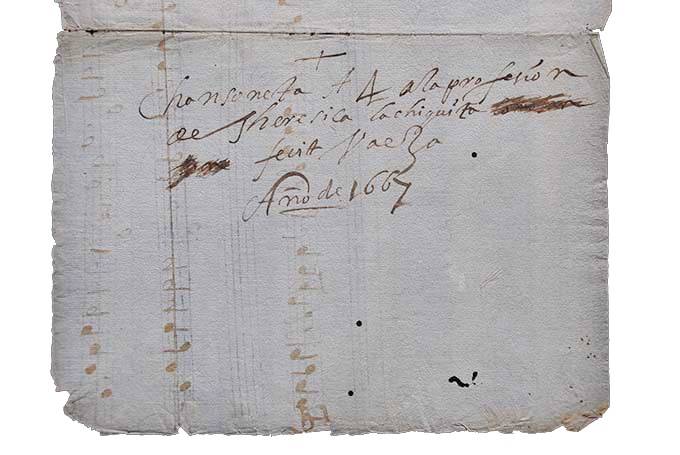 +
Chansoneta A 4 a la profesion
de Theresica la chiquita
fecit Vaeza
Año de 1667